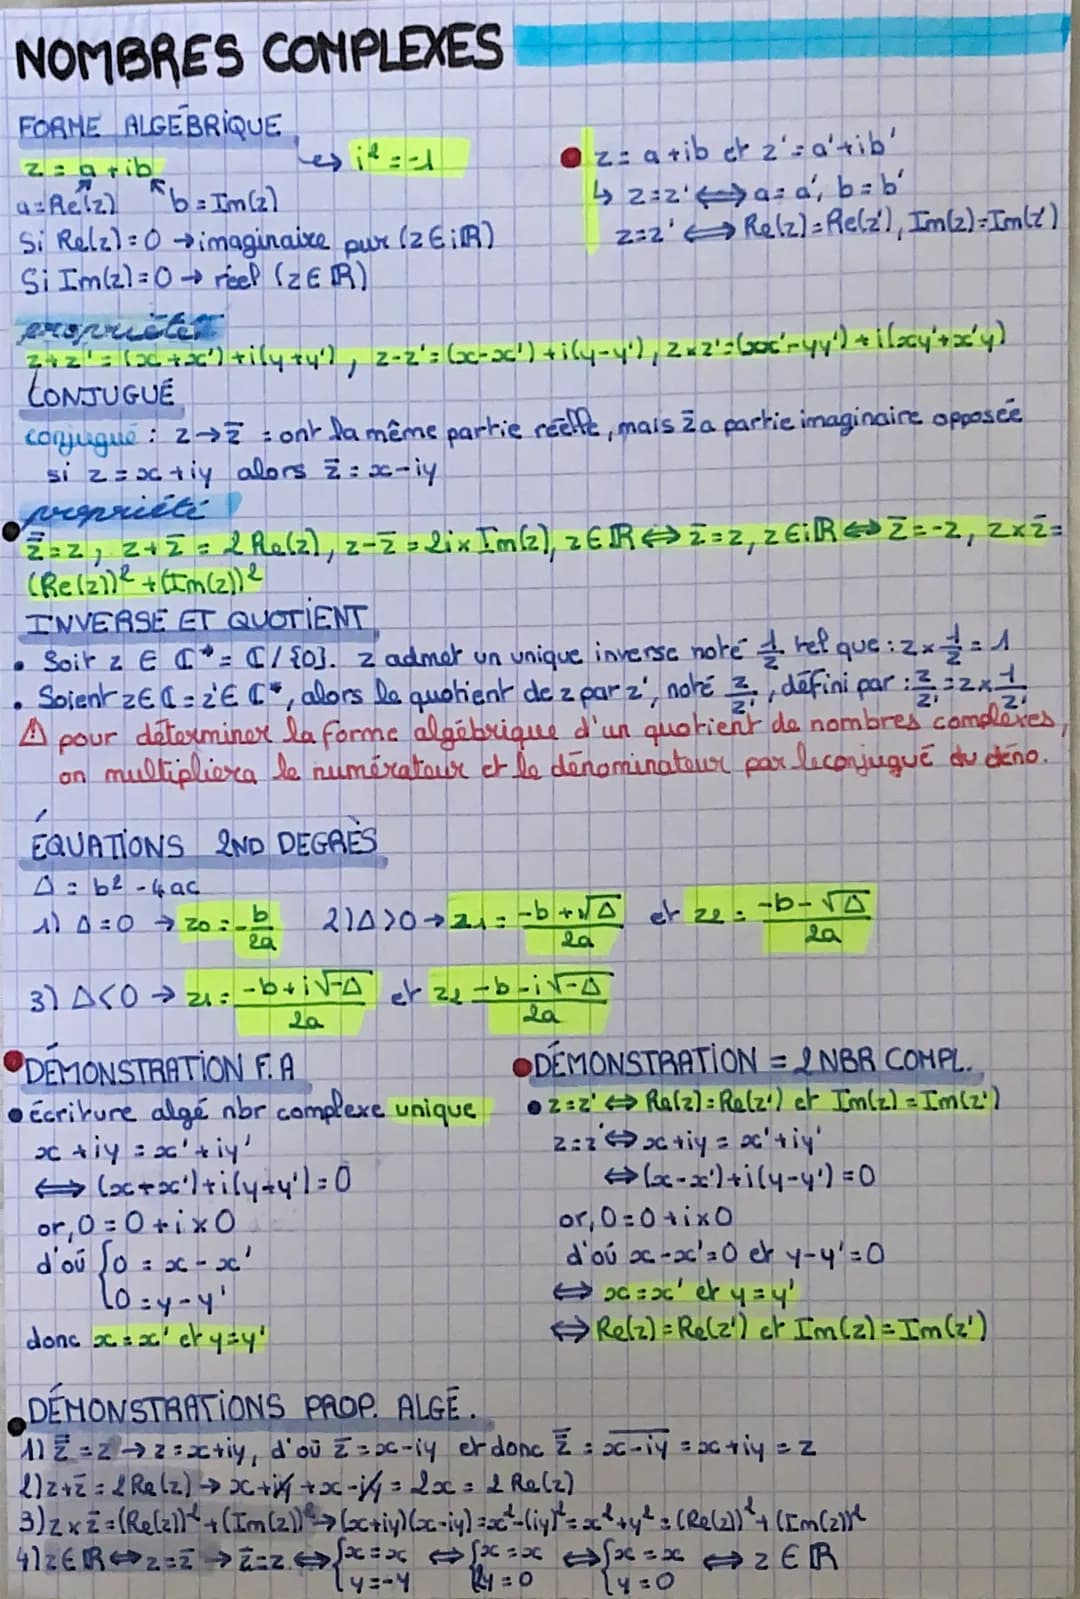 NOMBRES COMPLEXES
FORME ALGÉBRIQUE
z = a + ib ↪ i² = -1
a = Re(z) b = Im(z)
Si Re(z) = 0 → imaginaire pur (z ∈ iℝ)
Si Im(z) = 0 → réel (z ∈ ℝ)
z = a + ib et z' = a' + ib'
↳ z = z' ⟺ a = a', b = b'
z = z' ⟺ Re(z) = Re(z'), Im(z) = Im(z')
propriétés
z + z' = (x + x') + i(y + y'), z - z' = (x - x') + i(y - y'), z × z' = (xx' - yy') + i(xy' + x'y)
CONJUGUÉ
conjugué : z → z̄ = ont la même partie réelle, mais z̄ a partie imaginaire opposée
si z = x + iy alors z̄ = x - iy
propriété
z̿ = z, z + z̄ = 2 Re(z), z - z̄ = 2i × Im(z), z ∈ ℝ ⟺ z̄ = z, z ∈ iℝ ⟺ z̄ = -z, z × z̄ =
(Re(z))² + (Im(z))²
INVERSE ET QUOTIENT
• Soit z ∈ ℂ* = ℂ/{0}. z admet un unique inverse noté 1/z tel que : z × 1/z = 1
• Soient z ∈ ℂ = z' ∈ ℂ*, alors le quotient de z par z', noté z/z', défini par : z/z' = z × 1/z'
⚠ pour déterminer la forme algébrique d'un quotient de nombres complexes,
on multipliera le numérateur et le dénominateur par le conjugué du déno.
ÉQUATIONS 2ND DEGRÈS
Δ = b² - 4ac
1) Δ = 0 → z0 = -b/2a 2) Δ > 0 → z1 = (-b + √Δ)/2a et z2 = (-b - √Δ)/2a
3) Δ < 0 → z1 = (-b + i√-Δ)/2a et z2 (-b - i√-Δ)/2a
DÉMONSTRATION F.A
• Écriture algé nbr complexe unique
x + iy = x' + iy'
⟺ (x + x') + i(y + y') = 0
or, 0 = 0 + i × 0
d'où {0 = x - x'
{0 = y - y'
donc x = x' et y = y'
DÉMONSTRATION = 2 NBR COMPL.
• z = z' ⟺ Re(z) = Re(z') et Im(z) = Im(z')
z = z' ⟺ x + iy = x' + iy'
⟺ (x - x') + i(y - y') = 0
or, 0 = 0 + i × 0
d'où x - x' = 0 et y - y' = 0
⟺ x = x' et y = y'
⟺ Re(z) = Re(z') et Im(z) = Im(z')
DÉMONSTRATIONS PROP. ALGÉ.
1) z̿ = z → z = x + iy, d'où z̄ = x - iy et donc z̿ = \overline{x - iy} = x + iy = z
2) z + z̄ = 2 Re(z) → x + iy + x - iy = 2x = 2 Re(z)
3) z × z̄ = (Re(z))² + (Im(z))² → (x + iy)(x - iy) = x² - (iy)² = x² + y² = (Re(z))² + (Im(z))²
4) z ∈ ℝ ⟺ z = z̄ → z̄ = z ⟺ {x = x ⟺ {x = x ⟺ {x = x ⟺ z ∈ ℝ
{y = -y {2y = 0 {y = 0